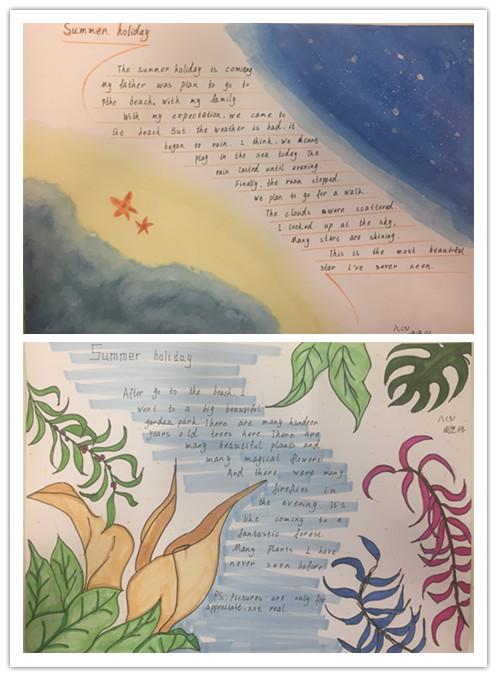 Summer holiday
The summer holiday is coming.
My father was plan to go to
the beach, with my family.
With my expectation, we came to
the beach. But the weather is bad, it
began to rain. I think, we
play in the sea today. The
rain lasted until evening.
Finally, the rain stopped.
We plan to go for a walk.
The clouds were scattered.
I looked up at the sky,
Many stars are shining.
This is the most beautiful
star I've never seen.
八(5)
Summer holiday
After go to the beach. I
went to a big beautiful
garden park. There are many hundren
years old trees here. There are
many beautiful plants and
many magical flowers
And there were many
fireflies in
the evening. It's
like coming to a
fantastic forest.
Many plants I have
never seen before
PS: Pictures are only for
appreciate, not real
八(5)